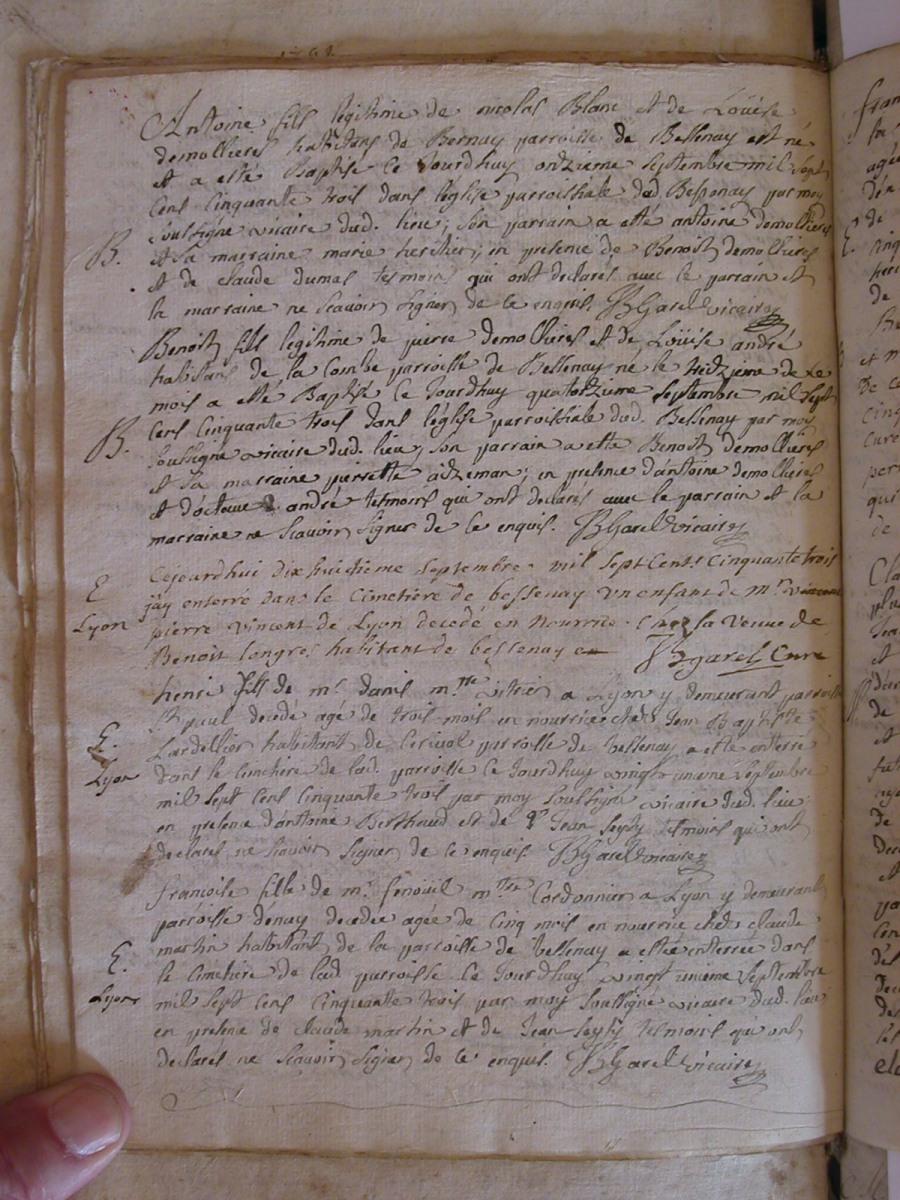 Antoine fils legitime de nicolas Blanc et de Loüise
demollieres habitans de Bernay parroisse de Bessenay est né
et a esté Baptisé ce Jourdhuy ontzieme septembre mil sept
cens cinquante trois dans léglise parroissiale dud. Bessenay par moy
soussigné vicaire dud. lieu; son parrain a esté antoine demollieres
B. et sa marraine marie heritier; en presence de Benoist demollieres
et de claude dumas tesmoins qui ont declarés avec le parrain et
la marraine ne scavoir signer de ce enquis. BGarel vicaire
Benoist fils legitime de pierre demollieres et de Loüise andré
habitans de la Combe parroisse de Bessenay né le treizieme de ce
mois a esté Baptisé ce Jourdhuy quatorzieme septembre mil sept
cens cinquante trois dans léglise parroissiale dud. Bessenay par moy
B. soussigné vicaire dud. lieu; son parrain a esté Benoist demollieres
et sa marraine pierrette; en presence dantoine demollieres
et andré tesmoins qui ont declarés avec le parrain et la
marraine ne scavoir signer de ce enquis. BGarel vicaire
Cejourdhui dix huitieme septembre mil sept cents cinquante trois
E jay enterré dans le cimetiere de bessenay un enfant de mr.
Lyon pierre vincent de Lyon decedé en nourrice chez la veuve de
Benoit Longres habitant de bessenay Bgarel Curé
henri fils de mr. danis mtre a Lyon y demeurant parroisse
St paul decedé agé de trois mois en nourrice chez Jean Baptiste
E. Lardellier habitant de parroisse de Bessenay a esté enterré
Lyon dans le cimetiere de lad. parroisse ce Jourdhuy vingt unieme septembre
mil sept cens cinquante trois par moy soussigné vicaire dud. lieu
en presence dantoine Berthaud et de Jean seyty tesmoins qui ont
declarés ne scavoir signer de ce enquis. BGarel vicaire
francoise fille de mr. fenoüil mtre Cordonnier a Lyon y demeurant
parroisse dénay decedée agée de cinq mois en nourrice chez claude
martin habitant de la parroisse de Bessenay a esté enterrée dans
E. le cimetiere de lad parroisse ce Jourdhuy vingt unieme septembre
Lyon mil sept cens cinquante trois par moy soussigné vicaire dud. lieu
en presence de claude martin et de Jean seyty tesmoins qui ont
declarés ne scavoir signer de ce enquis. BGarel vicaire